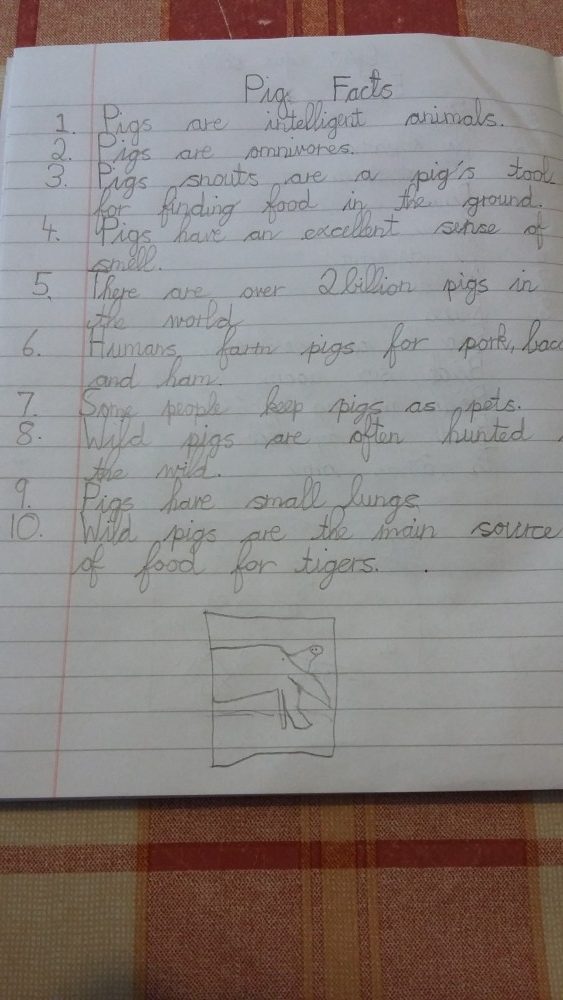 Pig Facts
1. Pigs are intelligent animals.
2. Pigs are omnivores.
3. Pigs snouts are a pig's tool
for finding food in the ground.
4. Pigs have an excellent sense of
smell.
5. There are over 2 billion pigs in
the world
6. Humans farm pigs for pork, bac
and ham.
7. Some people keep pigs as pets.
8. Wild pigs are often hunted
the wild.
9. Pigs have small lungs
10. Wild pigs are the main source
of food for tigers.